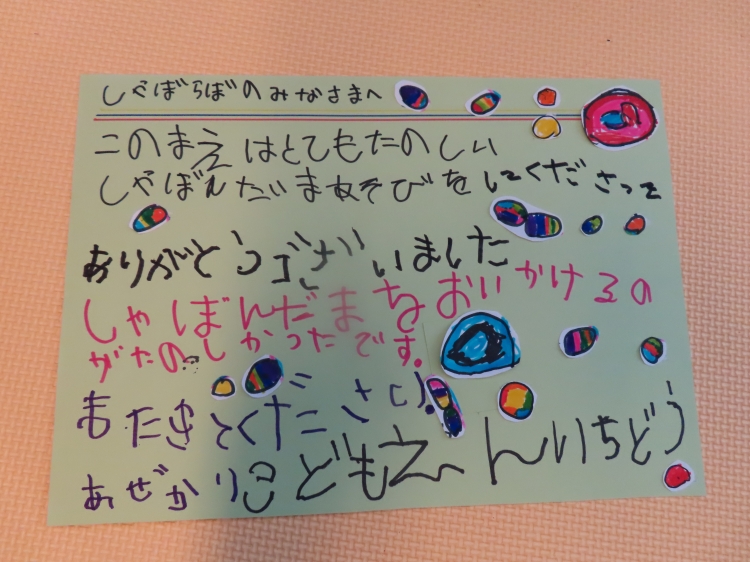 しゃぼらぼのみなさまへ
このまえはとてもたのしい
しゃぼんだまあそびをしてくださって
ありがとうございました
しゃぼんだまをおいかけるの
がたのしかったです。
またきてください。
あぜかりこどもえんいちどう